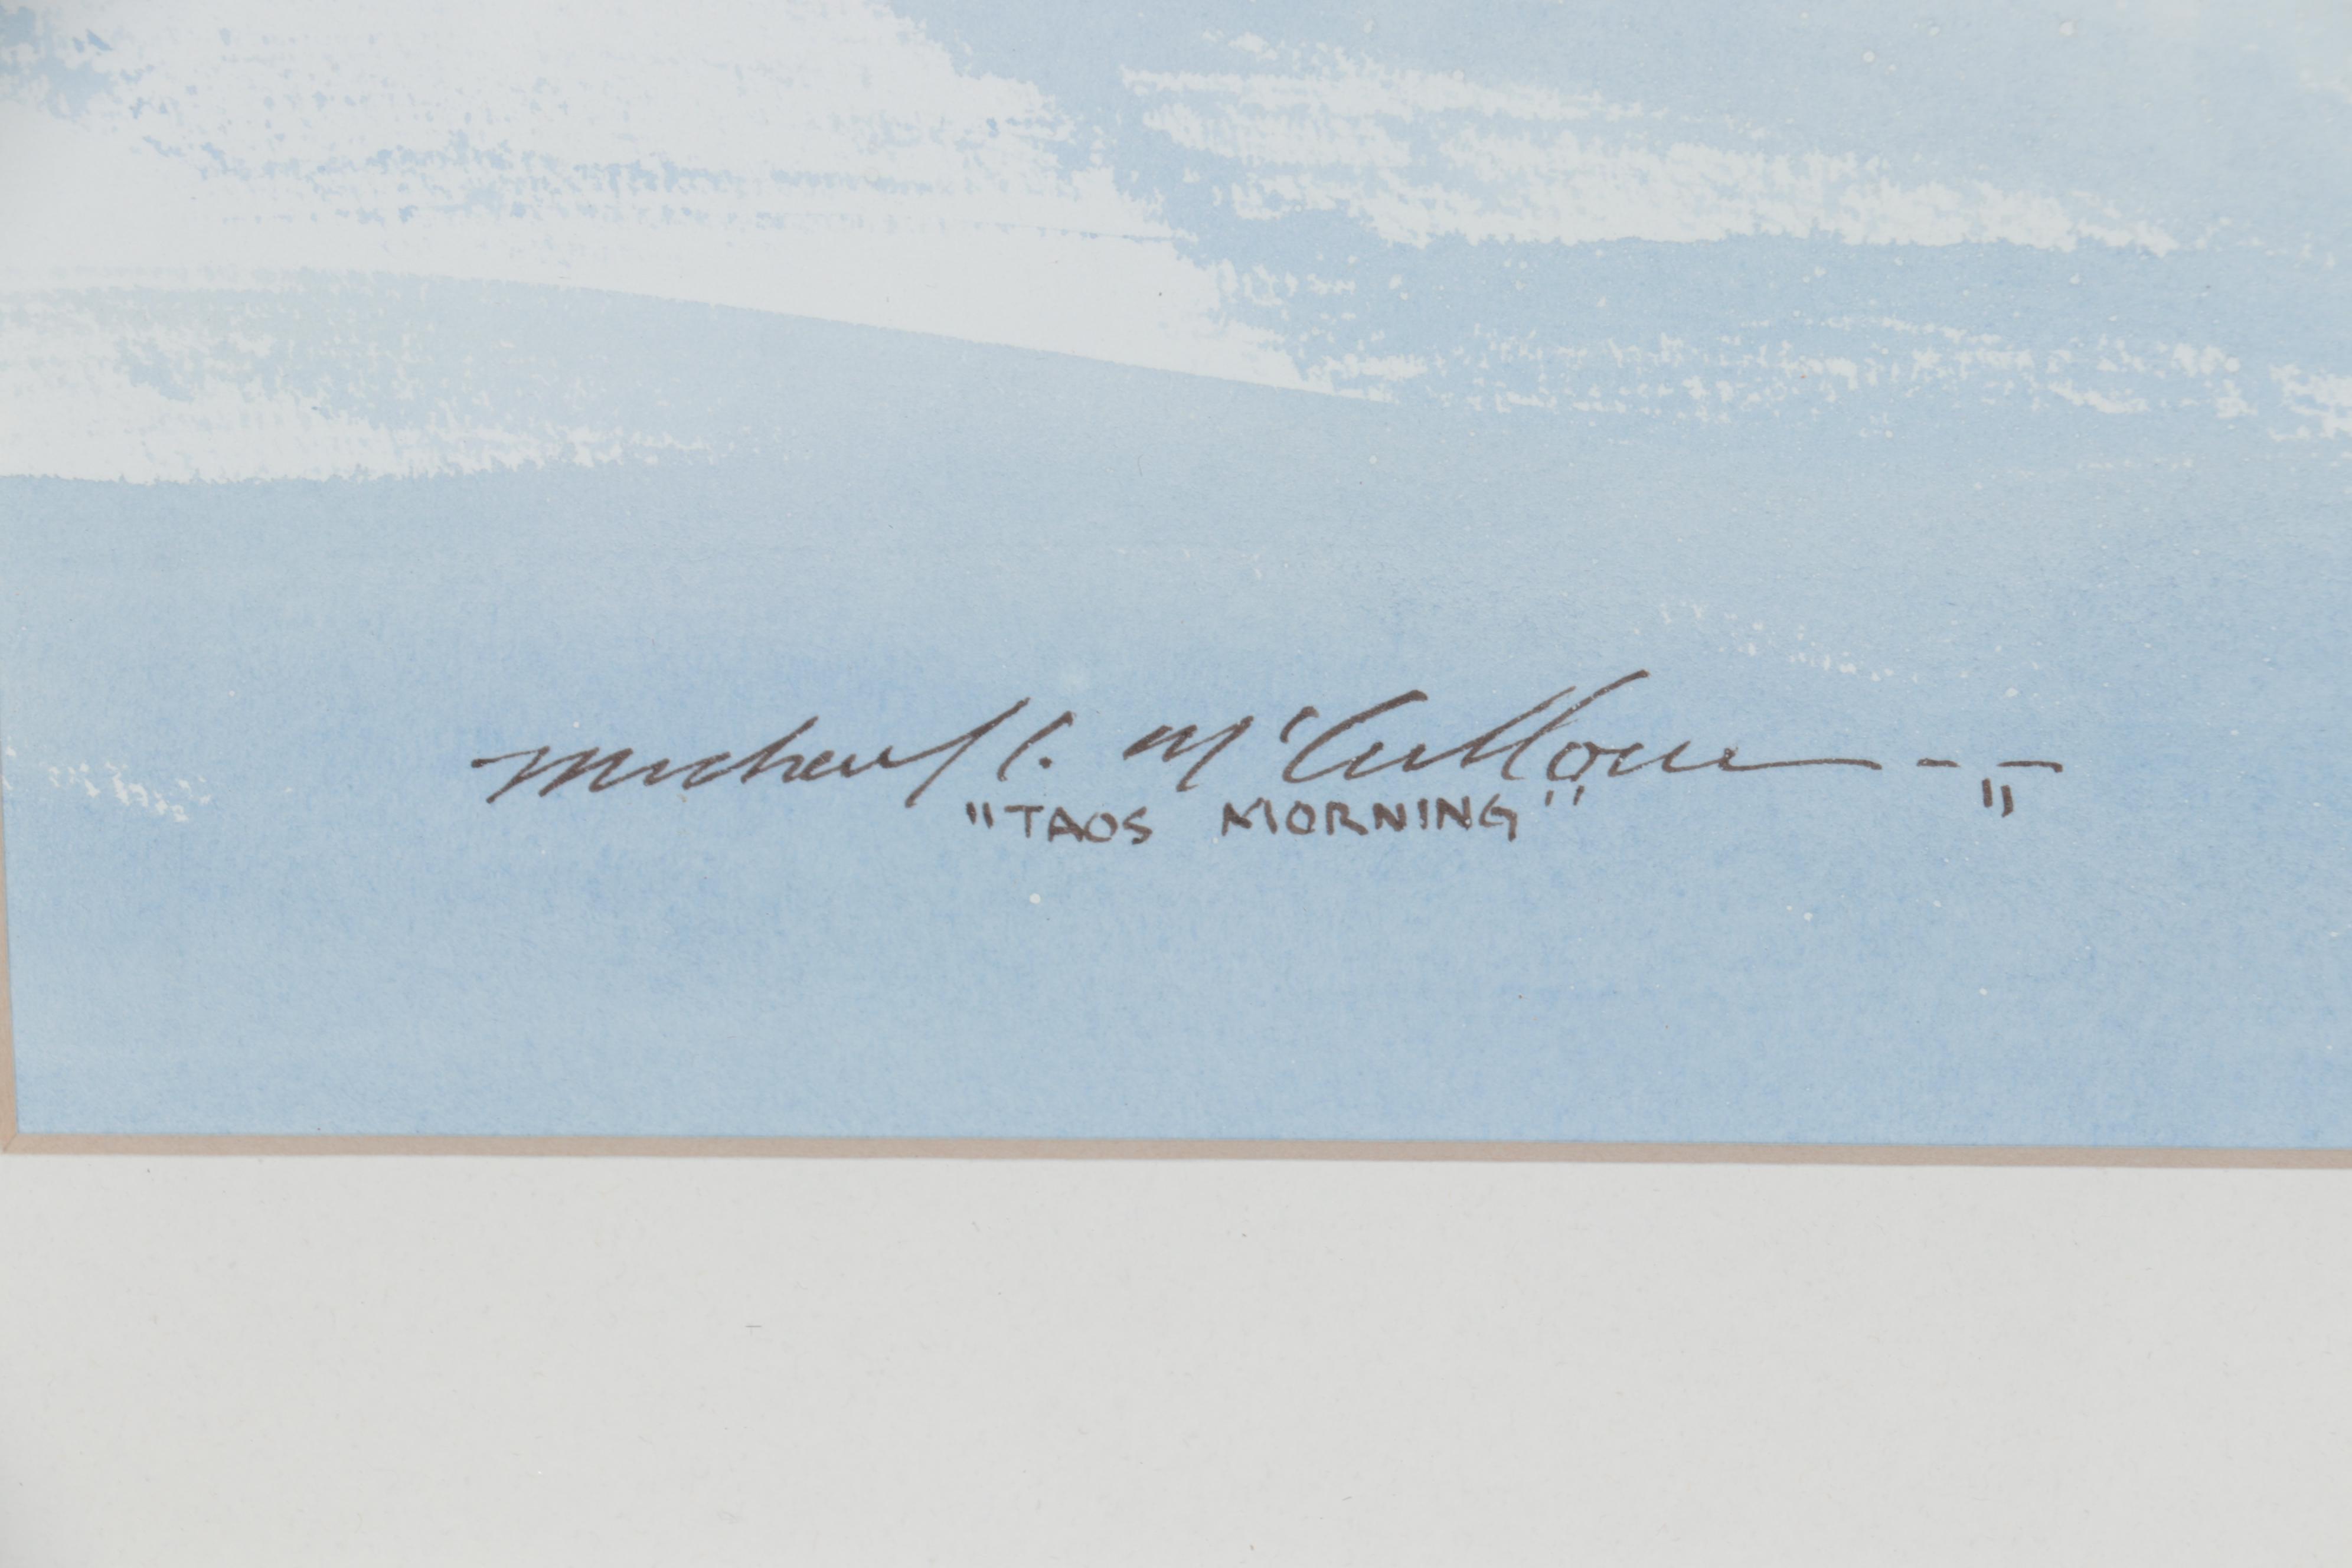 Michael C. McCullough
"TAOS MORNING"